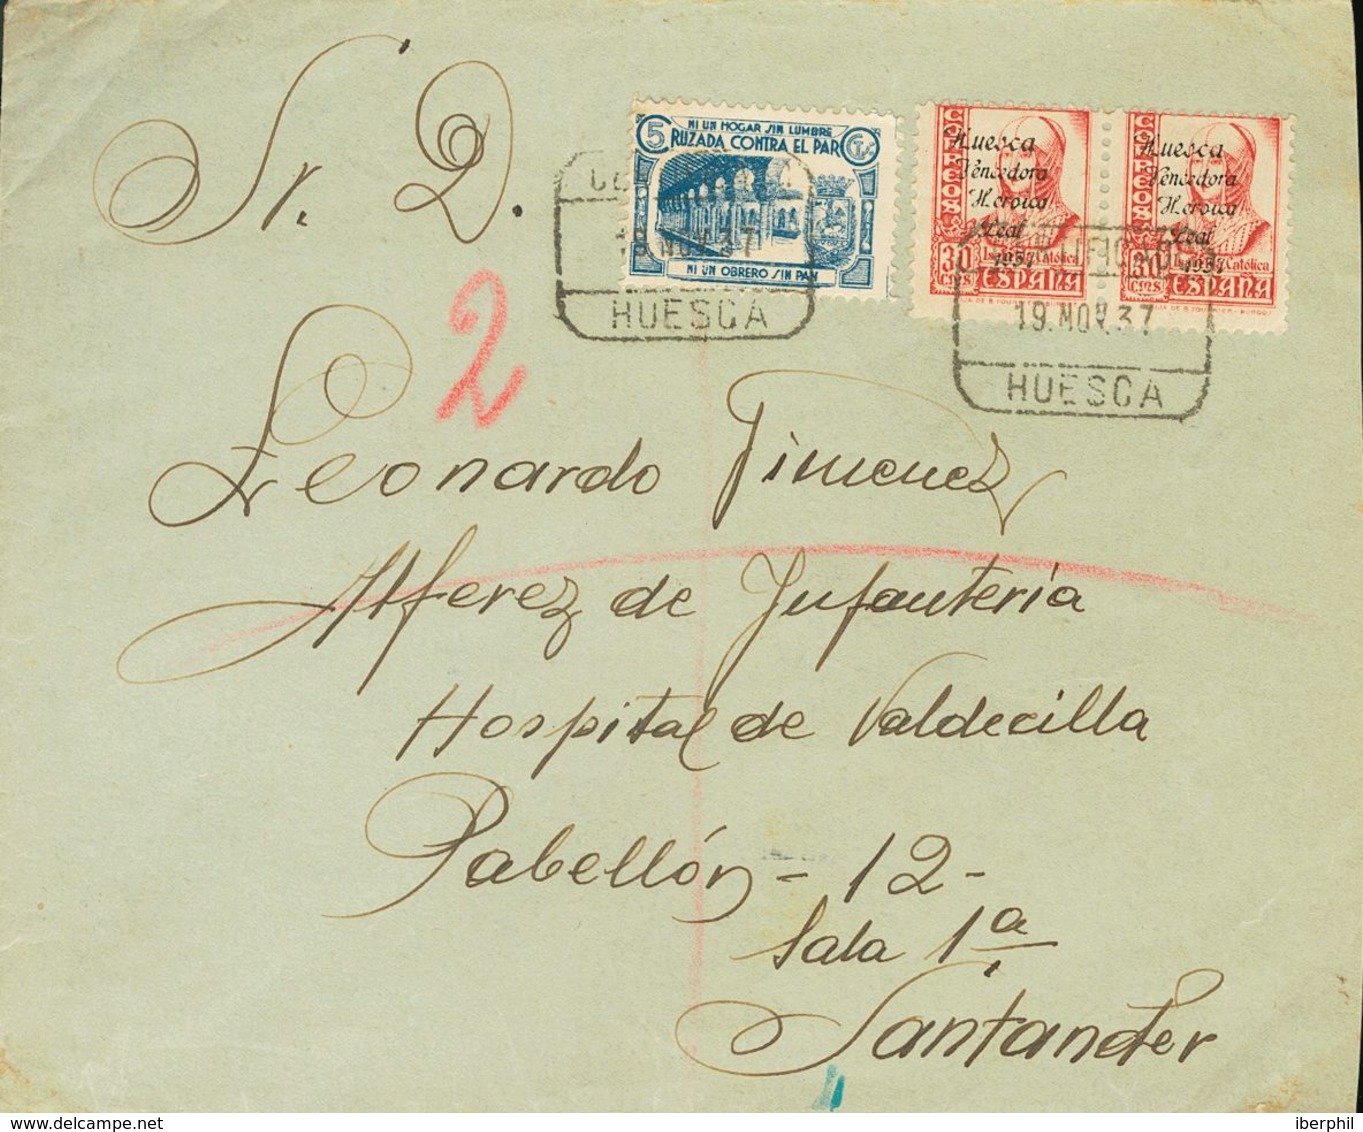 Sr. D.
NI UN HOGAR SIN LUMBRE
5 CRUZADA CONTRA EL PARO CTS
NI UN OBRERO SIN PAN
CORREOS
Huesca
Vencedora
Heroica
y Leal
1937
30 CTS Isabel la Católica
ESPAÑA
CORREOS
Huesca
Vencedora
Heroica
y Leal
1937
30 CTS Católica
ESPAÑA
19.NOV.37
HUESCA
CERTIFICADO
19.NOV.37
HUESCA
2
Leonardo Jimenez
Alferez de Infantería
Hospital de Valdecilla
Pabellón - 12 -
Sala 1ª
Santander
iberphil